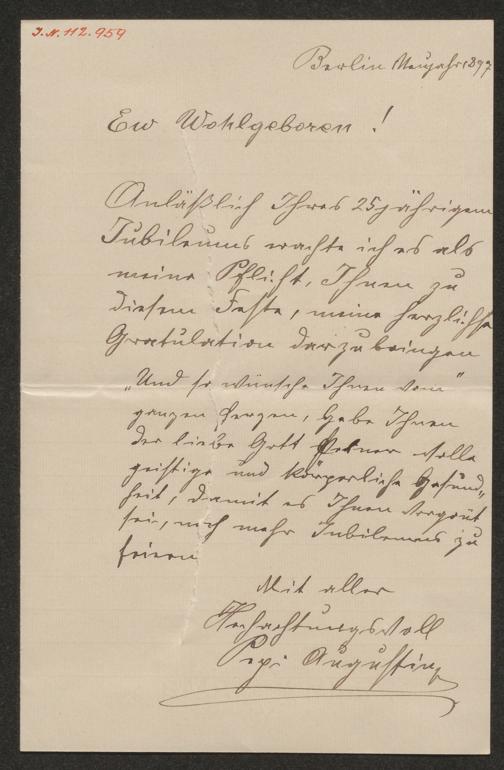 J.N. 112.959
Berlin Neujahr 1897
Ew Wohlgeboren!
Anläßlich Ihres 25jährigem
Jubileums erachte ich es als
meine Pflicht, Ihnen zu
diesem Feste, meine herzlichste
Gratulation darzubringen
„Und so wünsche Ihnen vom"
ganzen Herzen, Gebe Ihnen
der liebe Gott volle
geistige und körperliche Gesund„
heit, damit es Ihnen vergönt
sei, noch mehr Jubileums zu
feiern
Mit aller
Hochachtungsvoll
Pepi Augustin